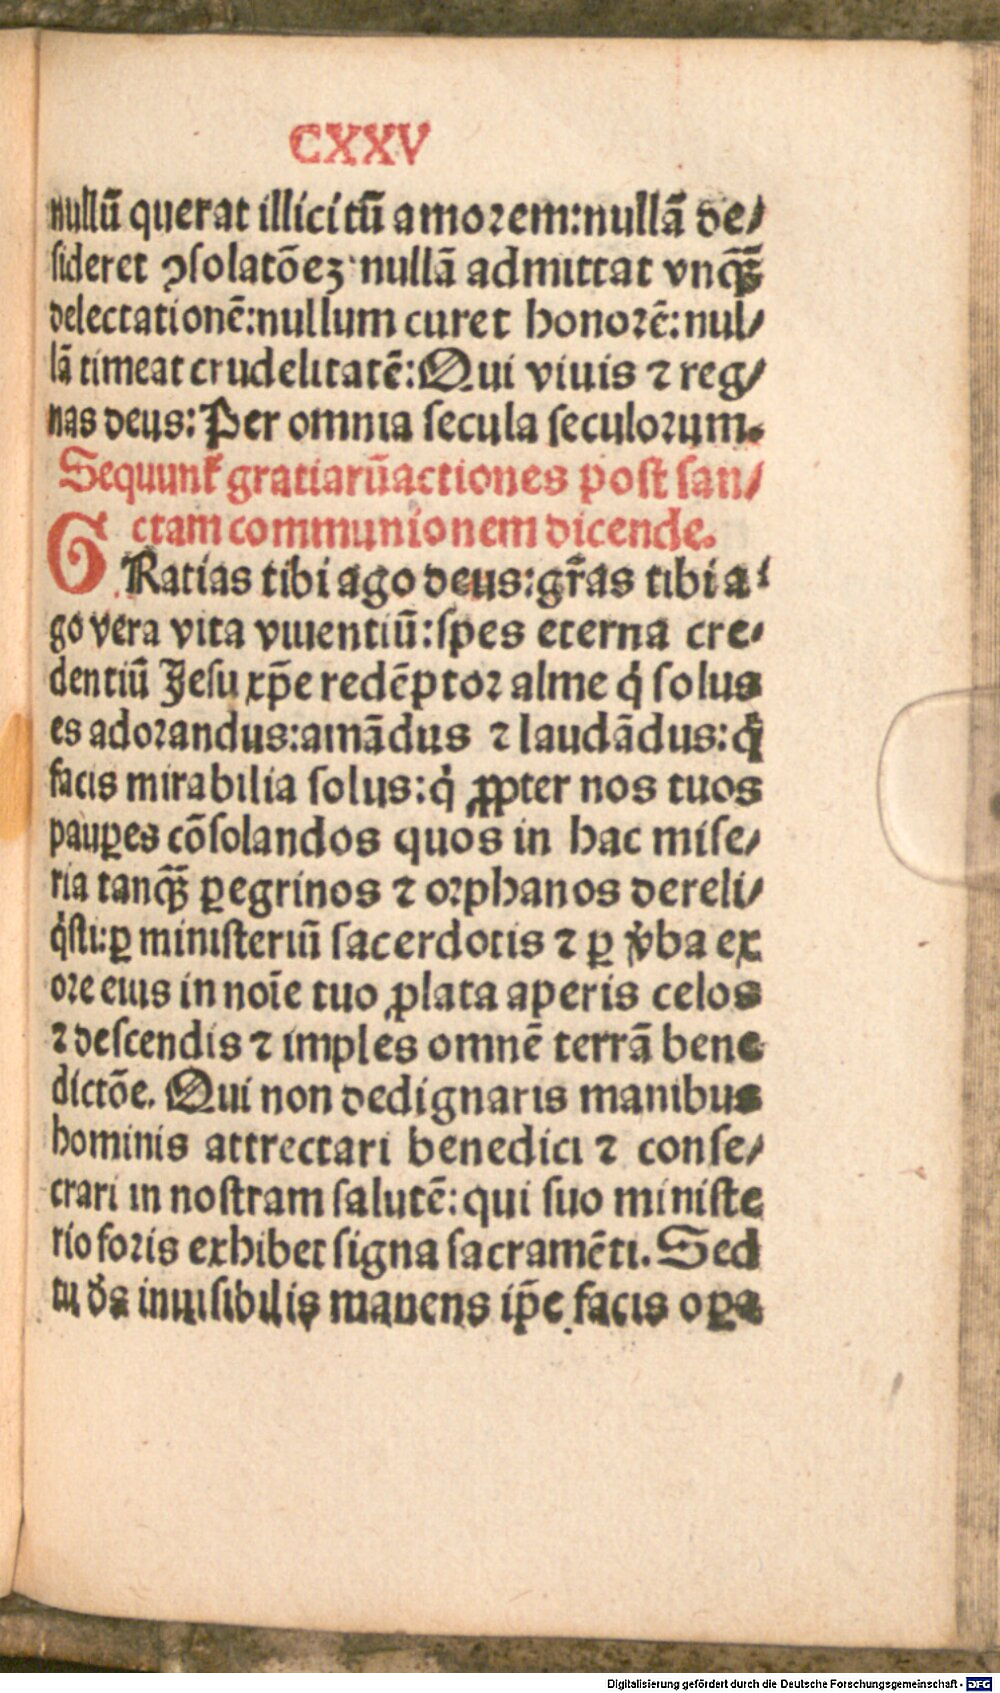 CXXV
nullū querat illicitū amoꝛem:nullā de⸗
ſideret ꝯſolatōeꝫ nullā admittat vnqꝫ̄
delectationē:nullum curet honoꝛē:nul⸗
lā timeat crudelitatē:Qui viuis ⁊ reg⸗
nas deus:Per omnia ſecula ſeculoꝛum.
Sequunt᷑ gratiarūactiones poſt ſan⸗
ctam communionem dicende.
GRatias tibi ago deus:gr̄as tibi a⸗
go vera vita viuentiū:ſpes eterna cre⸗
dentiū Jeſu xp̄e redēptoꝛ alme qͥ ſolus
es adoꝛandus:amādus ⁊ laudādus:qͥ
facis mirabilia ſolus:qͥ ꝓpter nos tuos
pauꝑes cōſolandos quos in hac miſe⸗
ria tanqꝫ̄ ꝑegrinos ⁊ oꝛphanos dereli⸗
qͥſti:ꝑ miniſteriū ſacerdotis ⁊ ꝑ v̓ba ex
oꝛe eius in noīe tuo ꝓlata aperis celos
⁊ deſcendis ⁊ imples omnē terrā bene
dictōe. Qui non dedignaris manibus
hominis attrectari benedici ⁊ conſe⸗
crari in noſtram ſalutē:qui ſuo miniſte
rio foꝛis exhibet ſigna ſacramēti. Sed
tu d̓s inuiſibilis manens ip̄e facis oꝑa
Digitalisierung gefördert durch die Deutsche Forschungsgemeinschaft - DFG